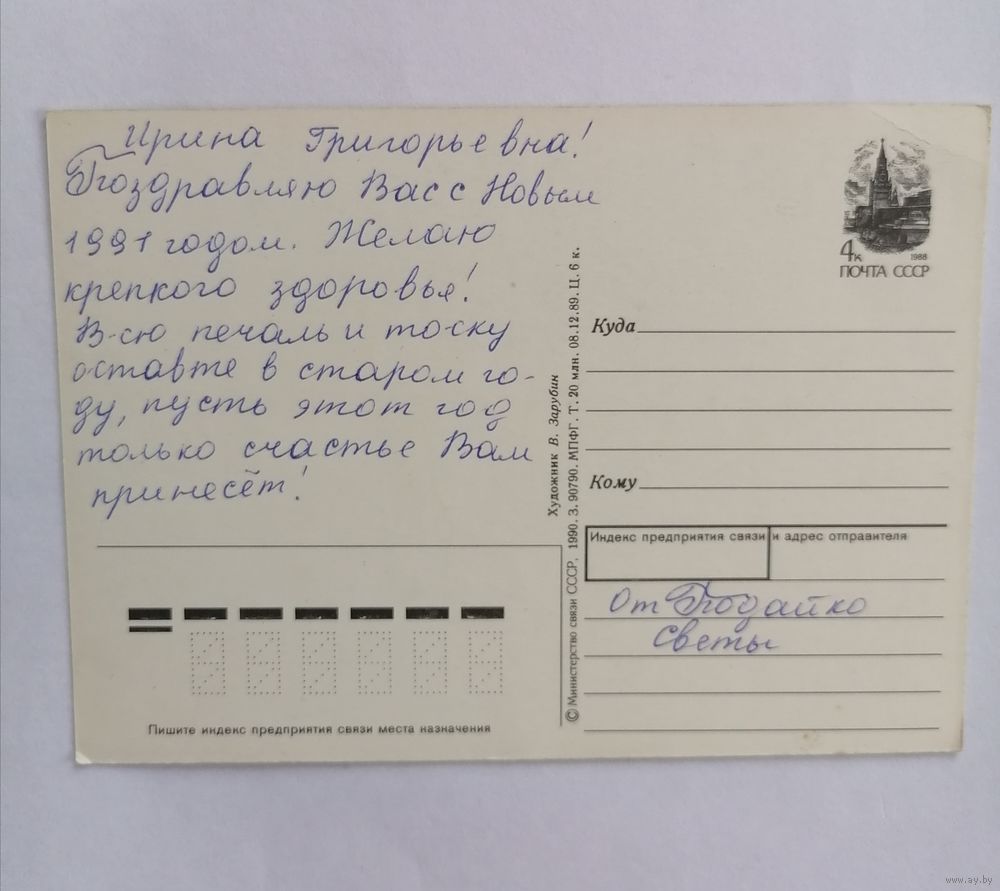 Ирина Григорьевна!
Поздравляю Вас с Новым
1991 годом. Желаю
крепкого здоровья!
В-сю печаль и тоску
оставте в старом го-
ду, пусть этот год
только счастье Вам
принесёт!
Пишите индекс предприятия связи места назначения
Художник В. Зарубин
© Министерство связи СССР, 1990. З. 90790. МПФГ. Т. 20 млн. 08.12.89. Ц. 6 к.
4к 1988
ПОЧТА СССР
Куда
Кому
Индекс предприятия связи и адрес отправителя
От Подайко
Светы
www.ay.by